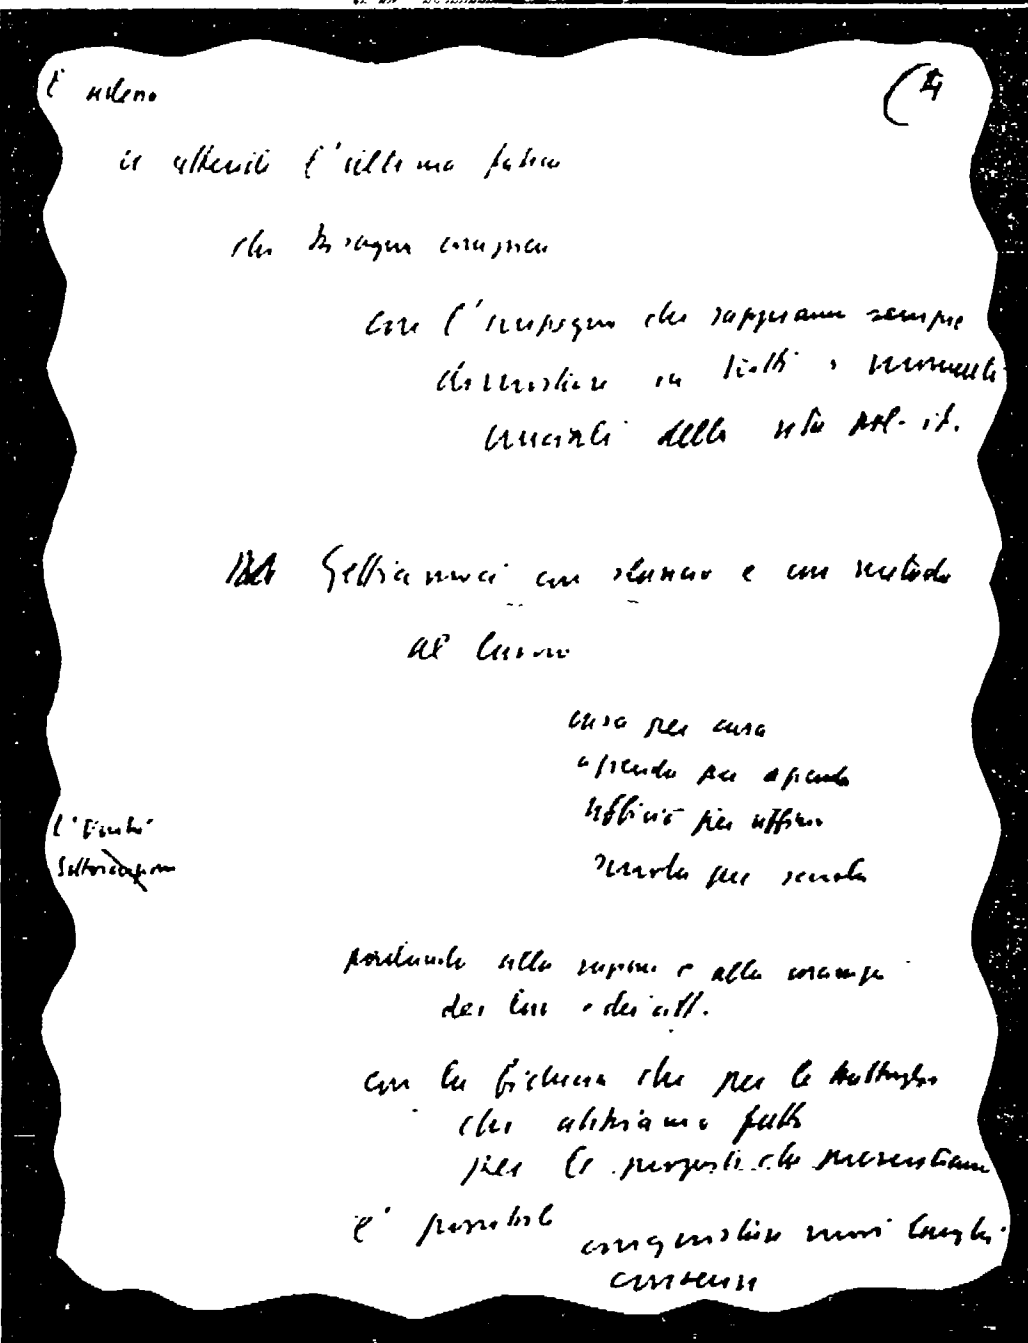 E adesso
ci attende l'ultima fatica
che bisogna compiere
con l'impegno che sappiamo sempre
dimostrare in tutti i momenti
cruciali della vita pol. it.
Gettiamoci con slancio e con metodo
al lavoro
casa per casa
azienda per azienda
ufficio per ufficio
scuola per scuola
L'Unità
parlando alla ragione e alla
dei lav. e dei citt.
con la fiducia che per le battaglie
che abbiamo fatto
per le proposte che presentiamo
e' possibile
conquistare nuovi larghi
consensi